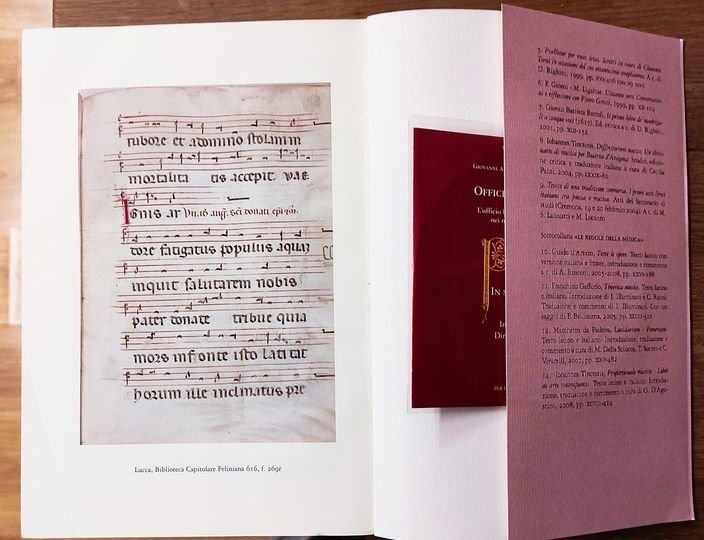 rubore et a domino stolam in
mortalita tis accepit vae
Ignis ar Vii. id aug. sci donati epi
dore fatigatus populus aquaz
inquit salutarem nobis
pater donate tribue quia
mors in fonte isto lati tat
horum ille inclinatus pre
Lucca, Biblioteca Capitolare Feliniana 616, f. 269r
GIOVANNI A
OFFICI
L'ufficio
nei
IN S
In
Di
PER I
5. Psallitur per voces istas. Scritti in onore di Clemente
Terni in occasione del suo ottantesimo compleanno. A c. di
D. Righini, 1999, pp.
6. F. Giomi - M. Ligabue, L'istante zero. Conversazio-
ni e riflessioni con Pietro Grossi, 1999, pp.
7. Giovan Battista Bartoli, Il primo libro de' madriga-
li a cinque voci (1617). Ed. critica a c. di D. Righini,
2001, pp. XLII-152
8. Iohannes Tinctoris, Diffinitorium musice. Un dizio-
nario di musica per Beatrice d'Aragona. Studio, edizio-
ne critica e traduzione italiana a cura di Cecilia
Panti, 2004, pp. LXXIX-80
9. Tracce di una tradizione sommersa. I primi testi lirici
italiani tra poesia e musica. Atti del Seminario di
studi (Cremona, 19 e 20 febbraio 2004). A c. di M.
S. Lannutti e M. Locanto
Sottocollana «LE REGOLE DELLA MUSICA»
10. Guido d'Arezzo, Tutte le opere. Testo latino con
versione italiana a fronte, introduzione e commento
a c. di A. Rusconi, 2005-2008, pp.
11. Franchino Gaffurio, Theorica musice. Testo latino
e italiano. Introduzione di I. Illuminati e C. Ruini.
Traduzione e commento di I. Illuminati. Con un
saggio di F. Bellissima, 2005, pp.
12. Marchetto da Padova, Lucidarium - Pomerium.
Testo latino e italiano. Introduzione, traduzione e
commento a cura di M. Della Sciucca, T. Sucato e C.
Vivarelli, 2007, pp.
14. Iohannes Tinctoris, Proportionale musices - Liber
de arte contrapuncti. Testo latino e italiano. Introdu-
zione, traduzione e commento a cura di G. D'Ago-
stino, 2008, pp.